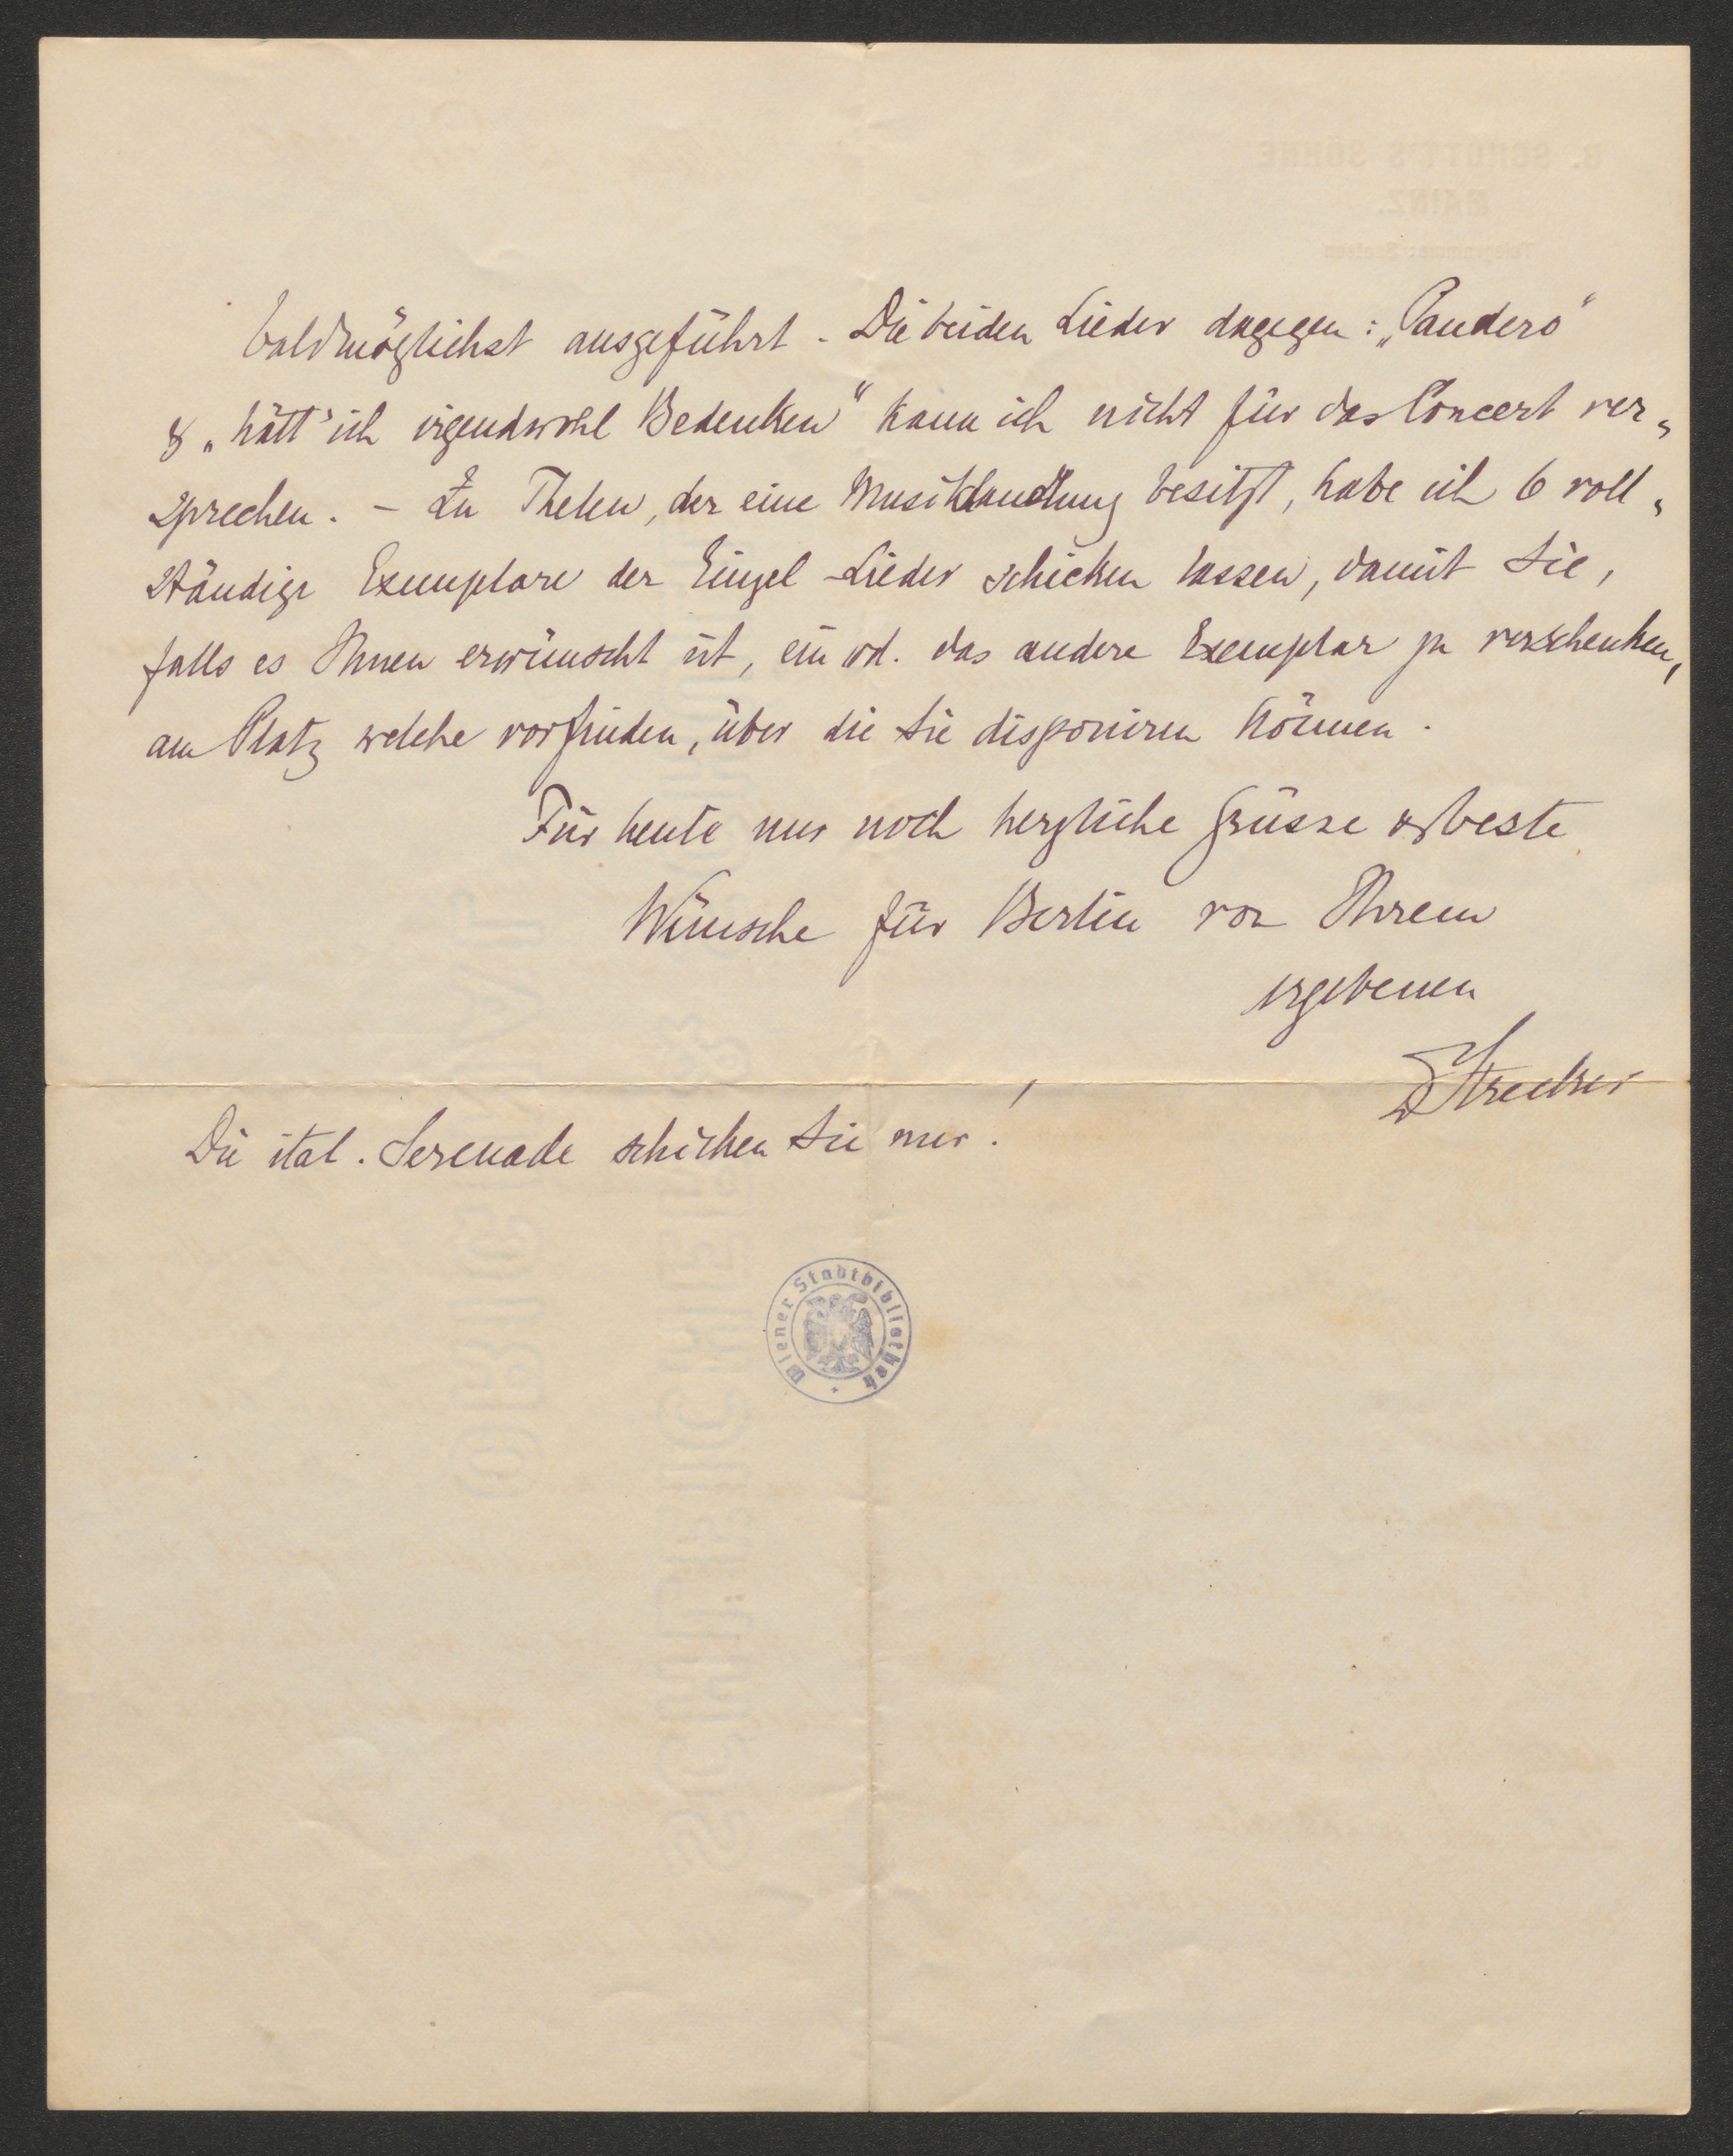 baldmöglichst ausgeführt. Die beiden Lieder dagegen: „Pandero"
& „hätt' ich irgendwohl Bedenken" kann ich nicht für das Concert ver-
sprechen. – Zu Thelen, der eine Musikhandlung besitzt, habe ich 6 voll-
ständige Exemplare der Einzel-Lieder schicken lassen, damit Sie,
falls es Ihnen erwünscht ist, ein od. das andere Exemplar zu verschenken,
am Platz welche vorfinden, über die Sie disponiren können.
Für heute nur noch herzliche Grüsse & beste
Wünsche für Berlin von Ihrem
ergebenen
Strecker
Die ital. Serenade schicken Sie nur!
Wiener Stadtbibliothek
B. SCHOTT'S SÖHNE
MAINZ.